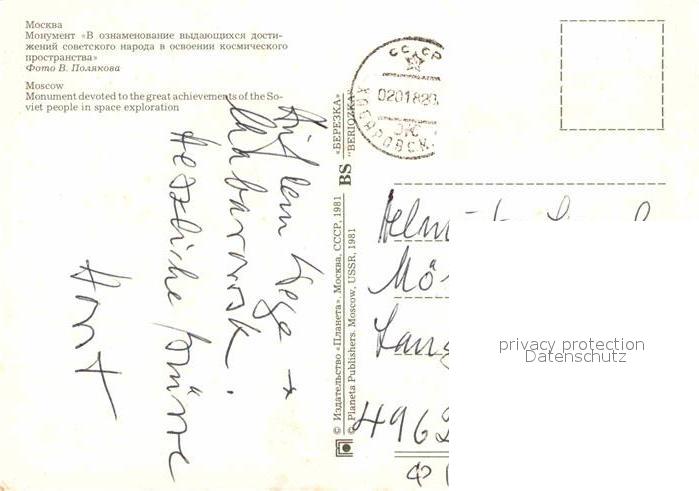 Москва
Монумент «В ознаменование выдающихся дости-
жений советского народа в освоении космического
пространства»
Фото В. Полякова
Moscow
Monument devoted to the great achievements of the So-
viet people in space exploration
Auf dem Wege →
Chabarowsk.
Herzliche Grüsse
Horst
© Издательство «Планета». Москва, СССР, 1981
© Planeta Publishers. Moscow, USSR, 1981
BS
«БЕРЕЗКА»
"BERIOZKA"
СССР
Helmut
Mö
Lang
4962
privacy protection
Datenschutz